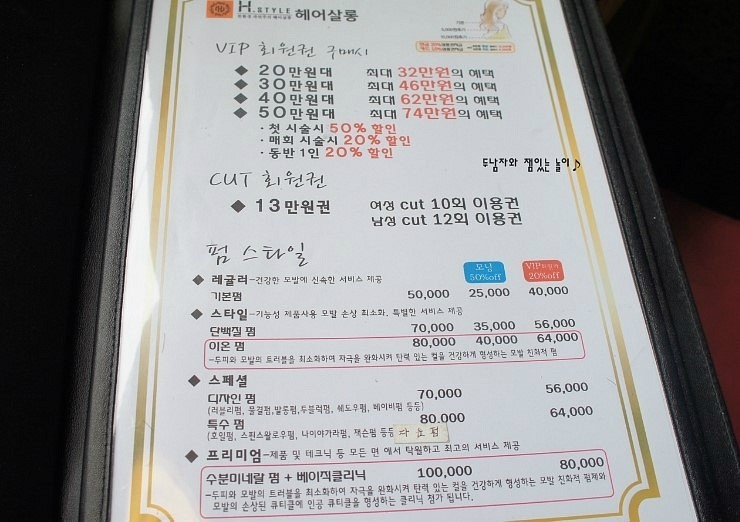 H.STYLE 헤어살롱
VIP 회원권 구매시
◆ 20만원대 최대 32만원의 혜택
◆ 30만원대 최대 46만원의 혜택
◆ 40만원대 최대 62만원의 혜택
◆ 50만원대 최대 74만원의 혜택
· 첫 시술시 50% 할인
· 매회 시술시 20% 할인
· 동반 1인 20% 할인
두남자와 잼있는 놀이♪
CUT 회원권
◆ 13만원권 여성 cut 10회 이용권
남성 cut 12회 이용권
펌 스타일
모닝 50%off VIP회원가 20%off
◆ 레귤러-건강한 모발에 신속한 서비스 제공
기본펌 50,000 25,000 40,000
◆ 스타일-기능성 제품사용 모발 손상 최소화, 특별한 서비스 제공
단백질 펌 70,000 35,000 56,000
이온 펌 80,000 40,000 64,000
-두피와 모발의 트러블을 최소화하여 자극을 완화시켜 탄력 있는 컬을 건강하게 형성하는 모발 친화적 펌
◆ 스페셜
디자인 펌 70,000 56,000
(러블리펌, 물결펌,발롱펌,두블럭펌, 쉐도우펌, 베이비펌 등등)
특수 펌 80,000 64,000
(호일펌, 스핀스왈로우펌, 나이아가라펌, 재슨펌 등등
◆ 프리미엄-제품 및 테크닉 등 모든 면 에서 탁월하고 최고의 서비스 제공
수분미네랄 펌 + 베이직클리닉 100,000 80,000
-두피와 모발의 트러블을 최소화하여 자극을 완화시켜 탄력 있는 컬을 건강하게 형성하는 모발 친화적 펌제와
모발의 손상된 큐티클에 인공 큐티클을 형성하는 클리닉 첨가 됩니다.